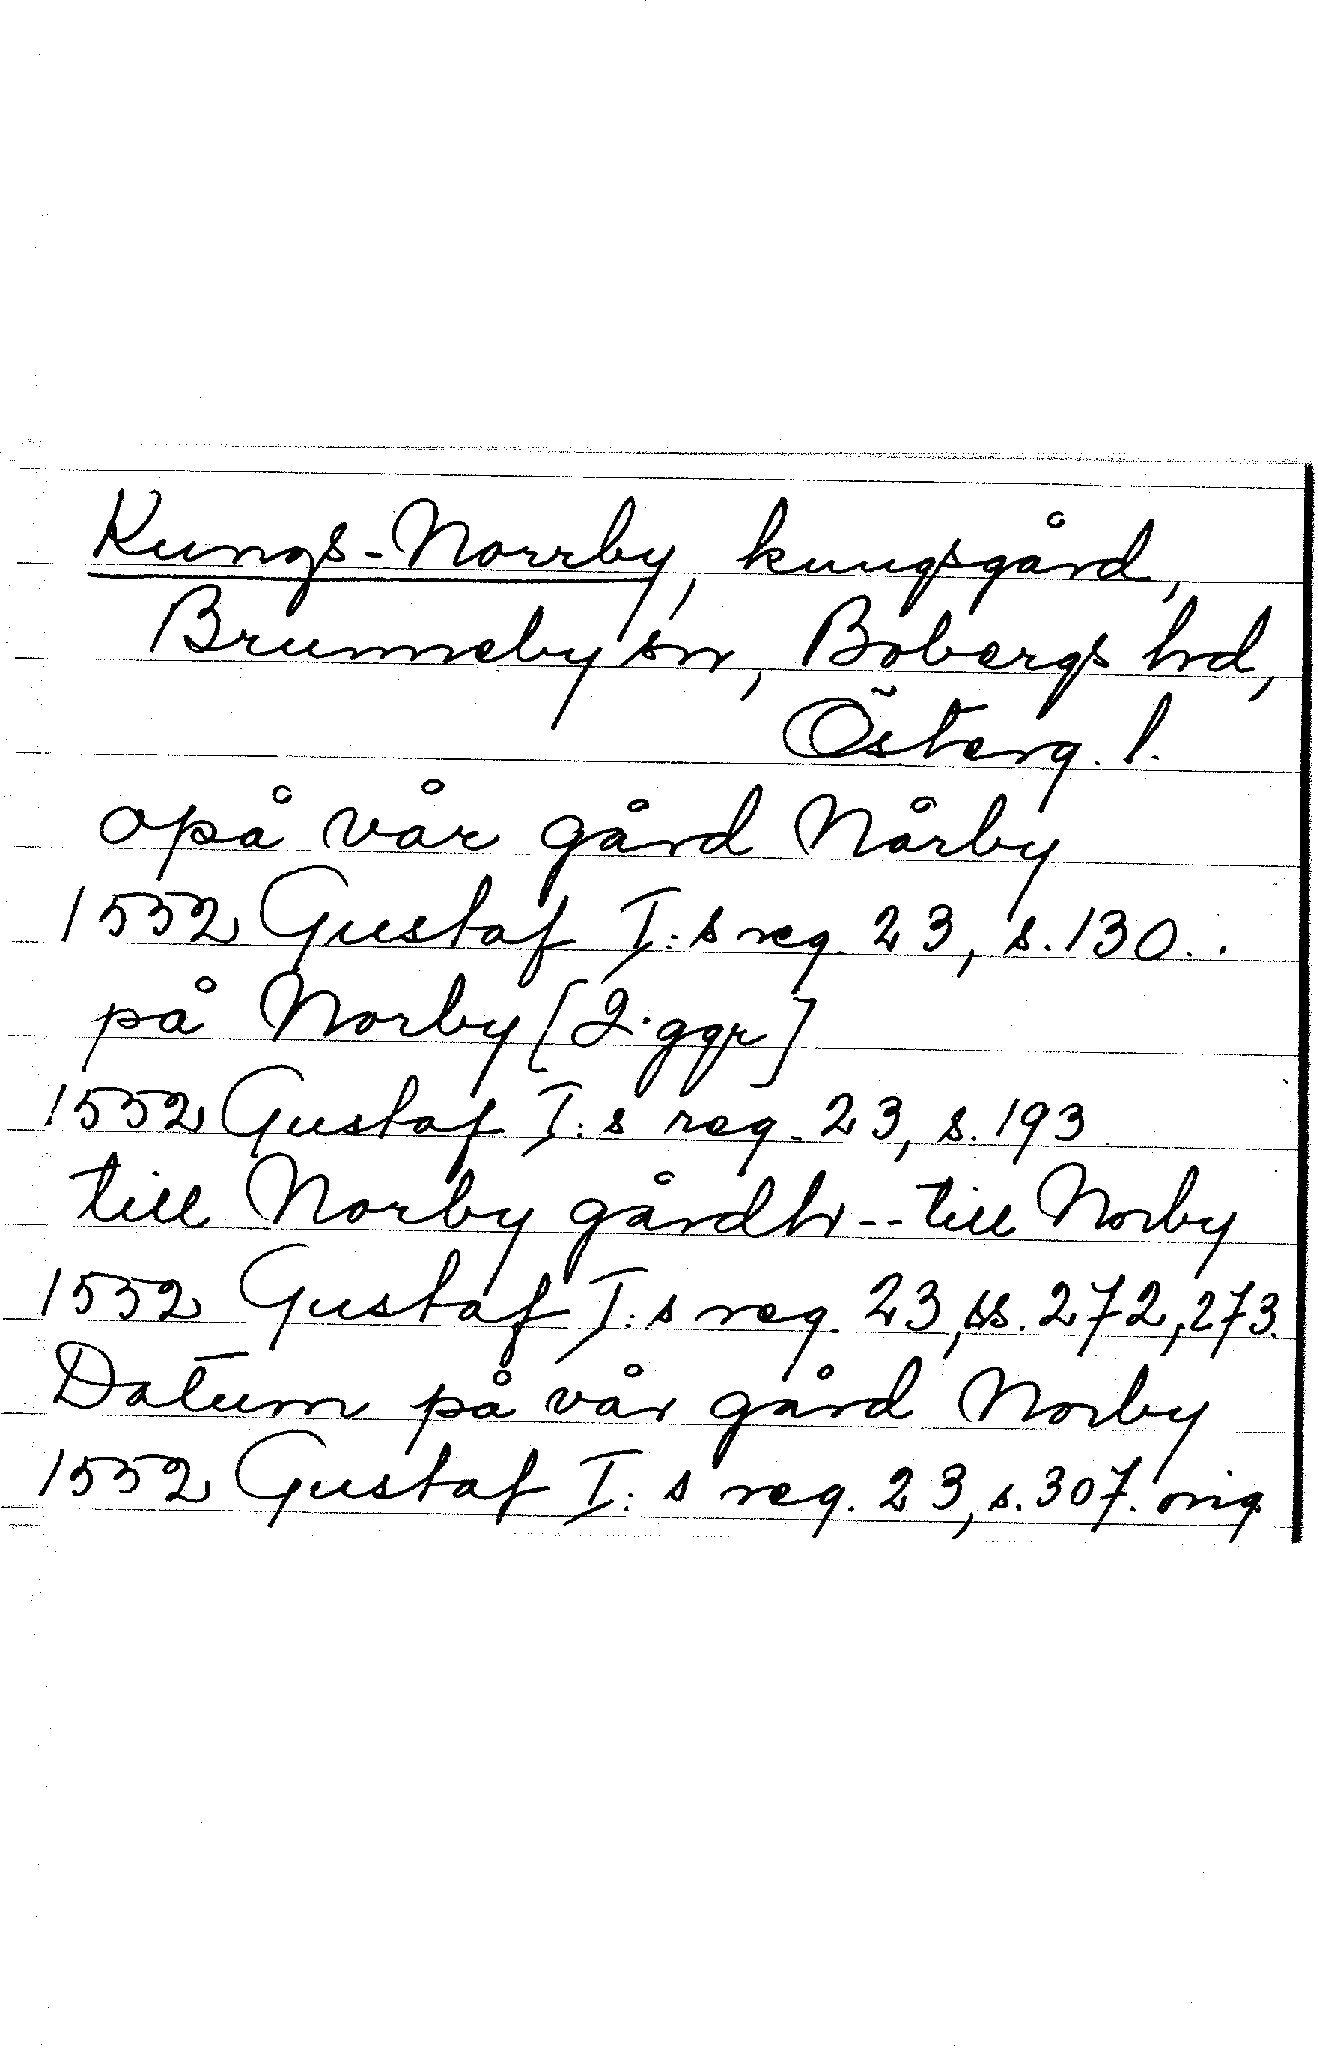 Kungs-Norrby, kungsgård,
Brunneby sn, Bobergs hd,
Österg. l.
opå vår gård Nårby
1552 Gustaf I:s reg. 23, s. 130..
på Norby [2 ggr]
1552 Gustaf I:s reg. 23, s. 193
till Norby gårdh -- till Norby
1552 Gustaf I:s reg. 23, ss. 272, 273.
Datum på vår gård Norby
1552 Gustaf I:s reg. 23, s. 307. orig.